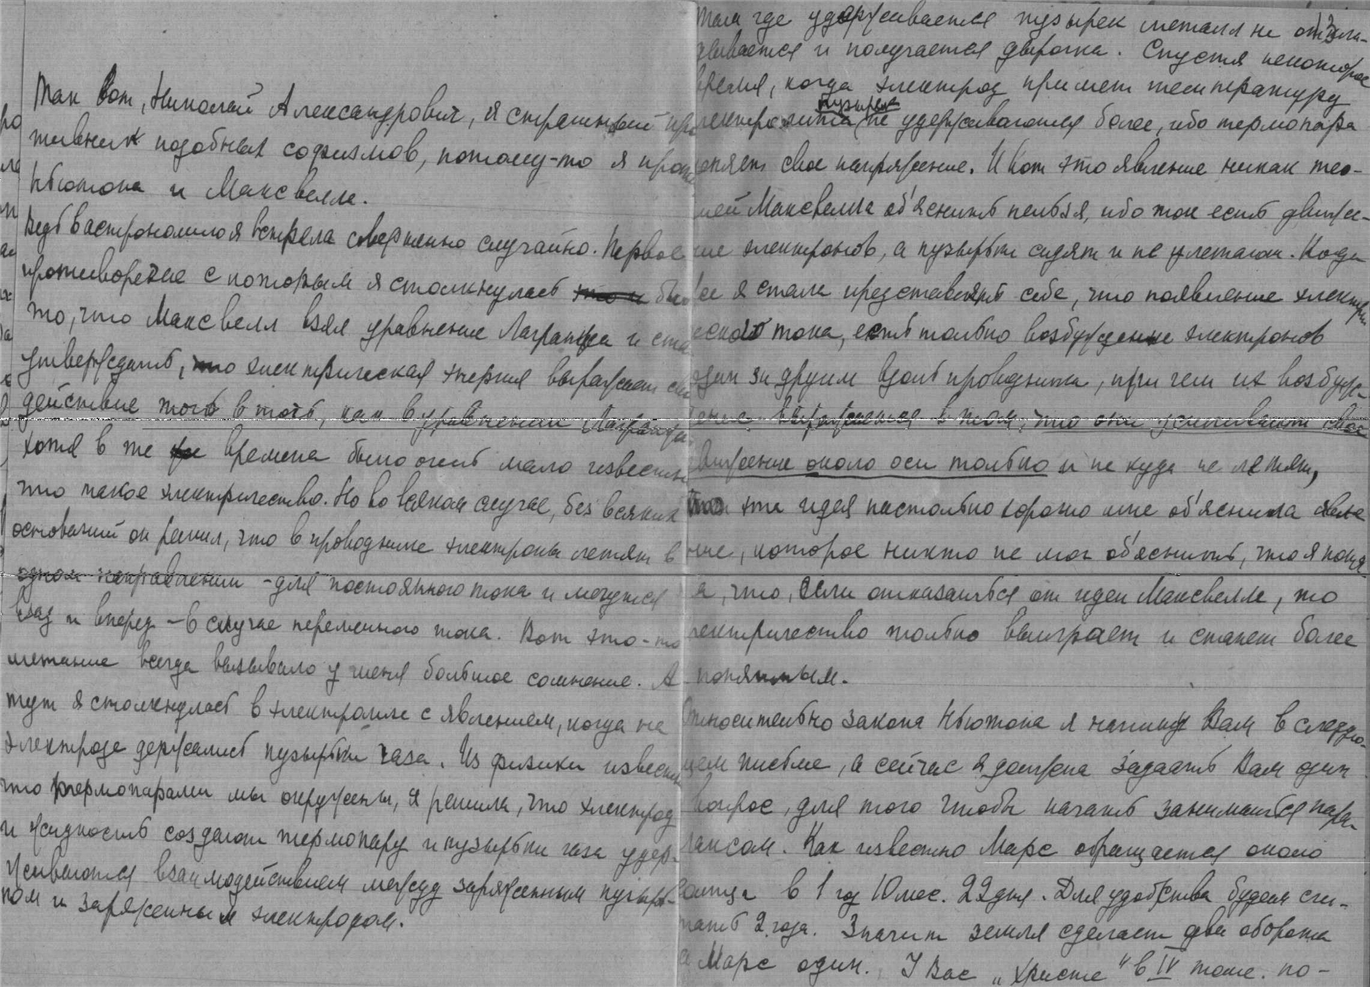 Так вот, Николай Александрович, я страшный про
тивник подобных софизмов, потому-то я против
Ньютона и Максвелла.
Ведь в астрономию я встряла совершенно случайно. Первое
противоречие с которым я столкнулась было
то, что Максвелл взял уравнение Лагранжа и стал
утверждать, что электрическая энергия выражает
действие того в точь, как в уравнении Лагранжа
хотя в те времена было очень мало известно
что такое электричество. Но во всяком случае, без всяких
оснований он решил, что в проводнике электроны летят в
одном направлении - для постоянного тока и мечутся
взад и вперед - в случае переменного тока. Вот это-то
метание всегда вызывало у меня большое сомнение. А
тут я столкнулась в электролизе с явлением, когда на
электроде держались пузырьки газа. Из физики известно
что термопарами мы окружены, я решила, что электрод
и жидкость создают термопару и пузырьки газа удер-
живаются взаимодействием между заряженным пузырь-
ком и заряженным электродом.
Там где удерживается пузырек металл не откла-
дывается и получается дырочка. Спустя некоторое
время, когда электрод примет температуру
электролита пузырьки не удерживаются более, ибо термопара
меняет свое напряжение. И вот это явление никак тео-
рией Максвелла об'яснить нельзя, ибо ток есть движе-
ние электронов, а пузырьки сидят и не улетают. Когда
же я стала представлять себе, что появление электри
ческого тока, есть только возбуждение электронов
один за другим вдоль проводника, при чем их возбуж-
дение выражается в том, что они усиливают свое
вращение около оси только и не куда не летят,
то эта идея настолько хорошо мне об'яснила явле
ние, которое никто не мог об'яснить, что я поня
ла, что, если отказаться от идеи Максвелла, то
электричество только выиграет и станет более
понятным.
Относительно закона Ньютона я напишу Вам в следую-
щем письме, а сейчас я должна задать Вам один
вопрос, для того чтобы начать заниматься парал
лаксом. Как известно Марс обращается около
солнца в 1 год 10 мес. 22 дня. Для удобства будем счи-
тать 2 года. Значит земля сделает два оборота
а Марс один. У Вас „Христе“ в IV томе. по-